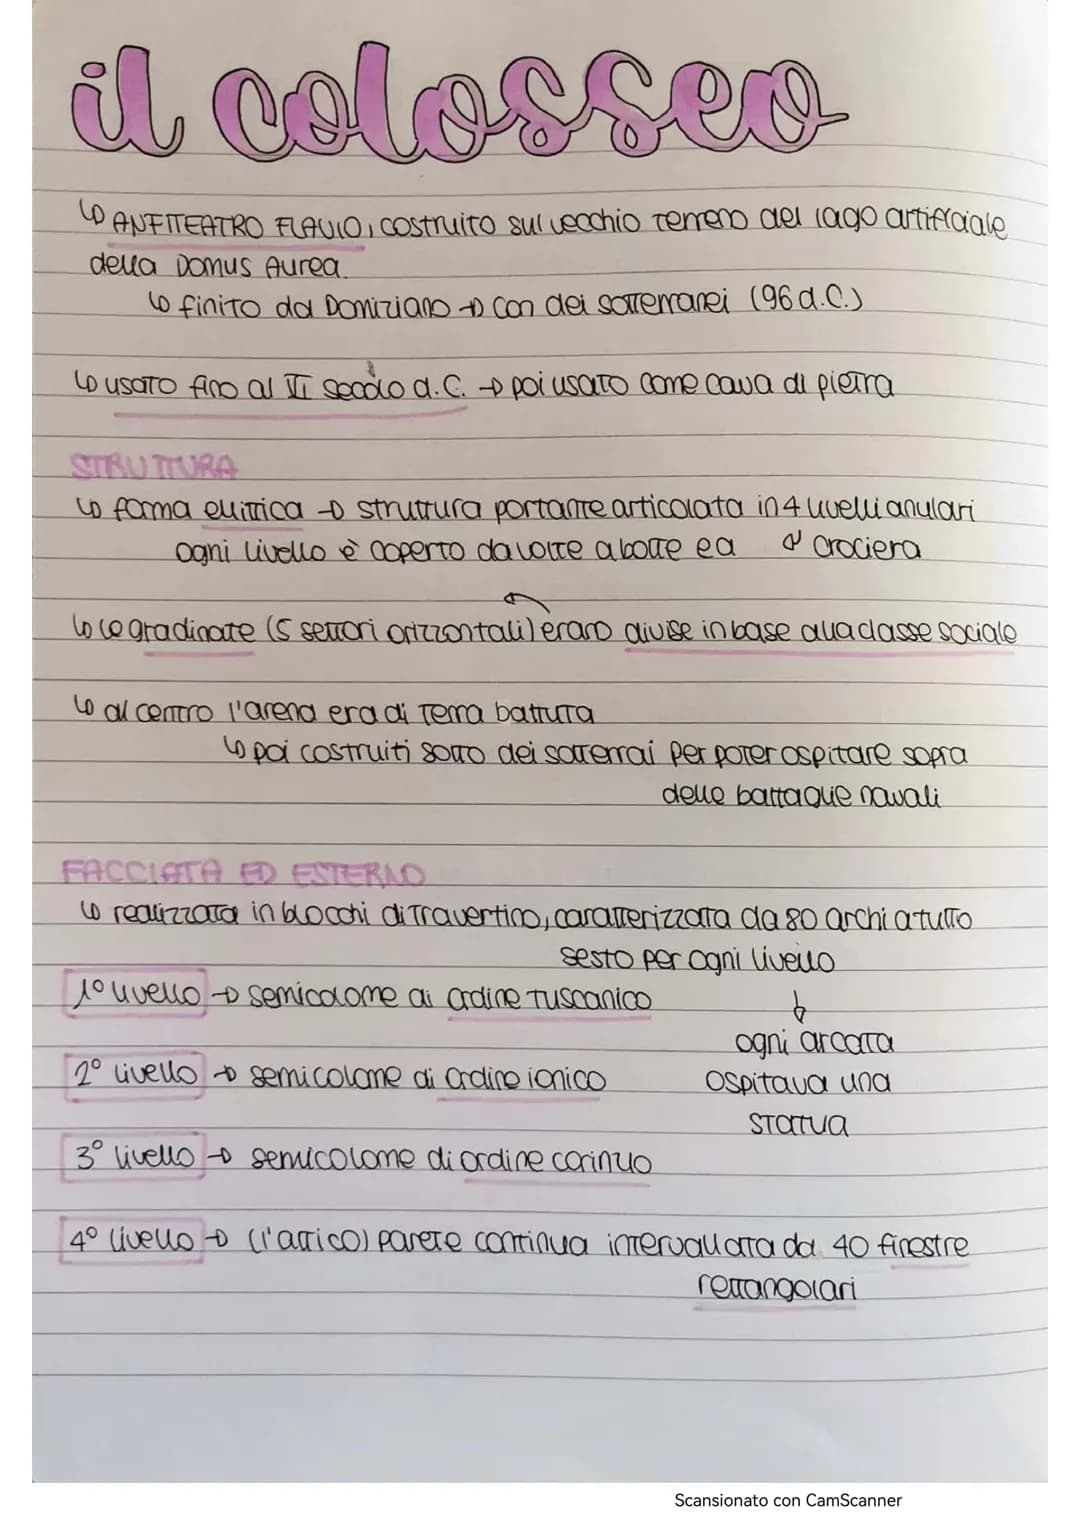 il colosseo
↳ ANFITEATRO FLAVIO, costruito sul vecchio terreno del lago artificiale
della Domus Aurea.
↳ finito da Domiziano → con dei sotterranei (96 d.C.)
↳ usato fino al VI secolo d.C. → poi usato come cava di pietra
STRUTTURA
↳ forma ellittica → struttura portante articolata in 4 livelli anulari
ogni livello è coperto da volte a botte e a crociera
↳ le gradinate (5 settori orizzontali) erano divise in base alla classe sociale
↳ al centro l'arena era di terra battuta
↳ poi costruiti sotto dei sotterrai per poter ospitare sopra
delle battaglie navali
FACCIATA ED ESTERNO
↳ realizzata in blocchi di Travertino, caratterizzata da 80 archi a tutto
sesto per ogni livello
1° livello → semicolonne di ordine tuscanico
↓
ogni arcata
2° livello → semicolonne di ordine ionico
ospitava una
statua
3° livello → semicolonne di ordine corinzio
4° livello → (l'attico) parete continua intervallata da 40 finestre
rettangolari
Scansionato con CamScanner